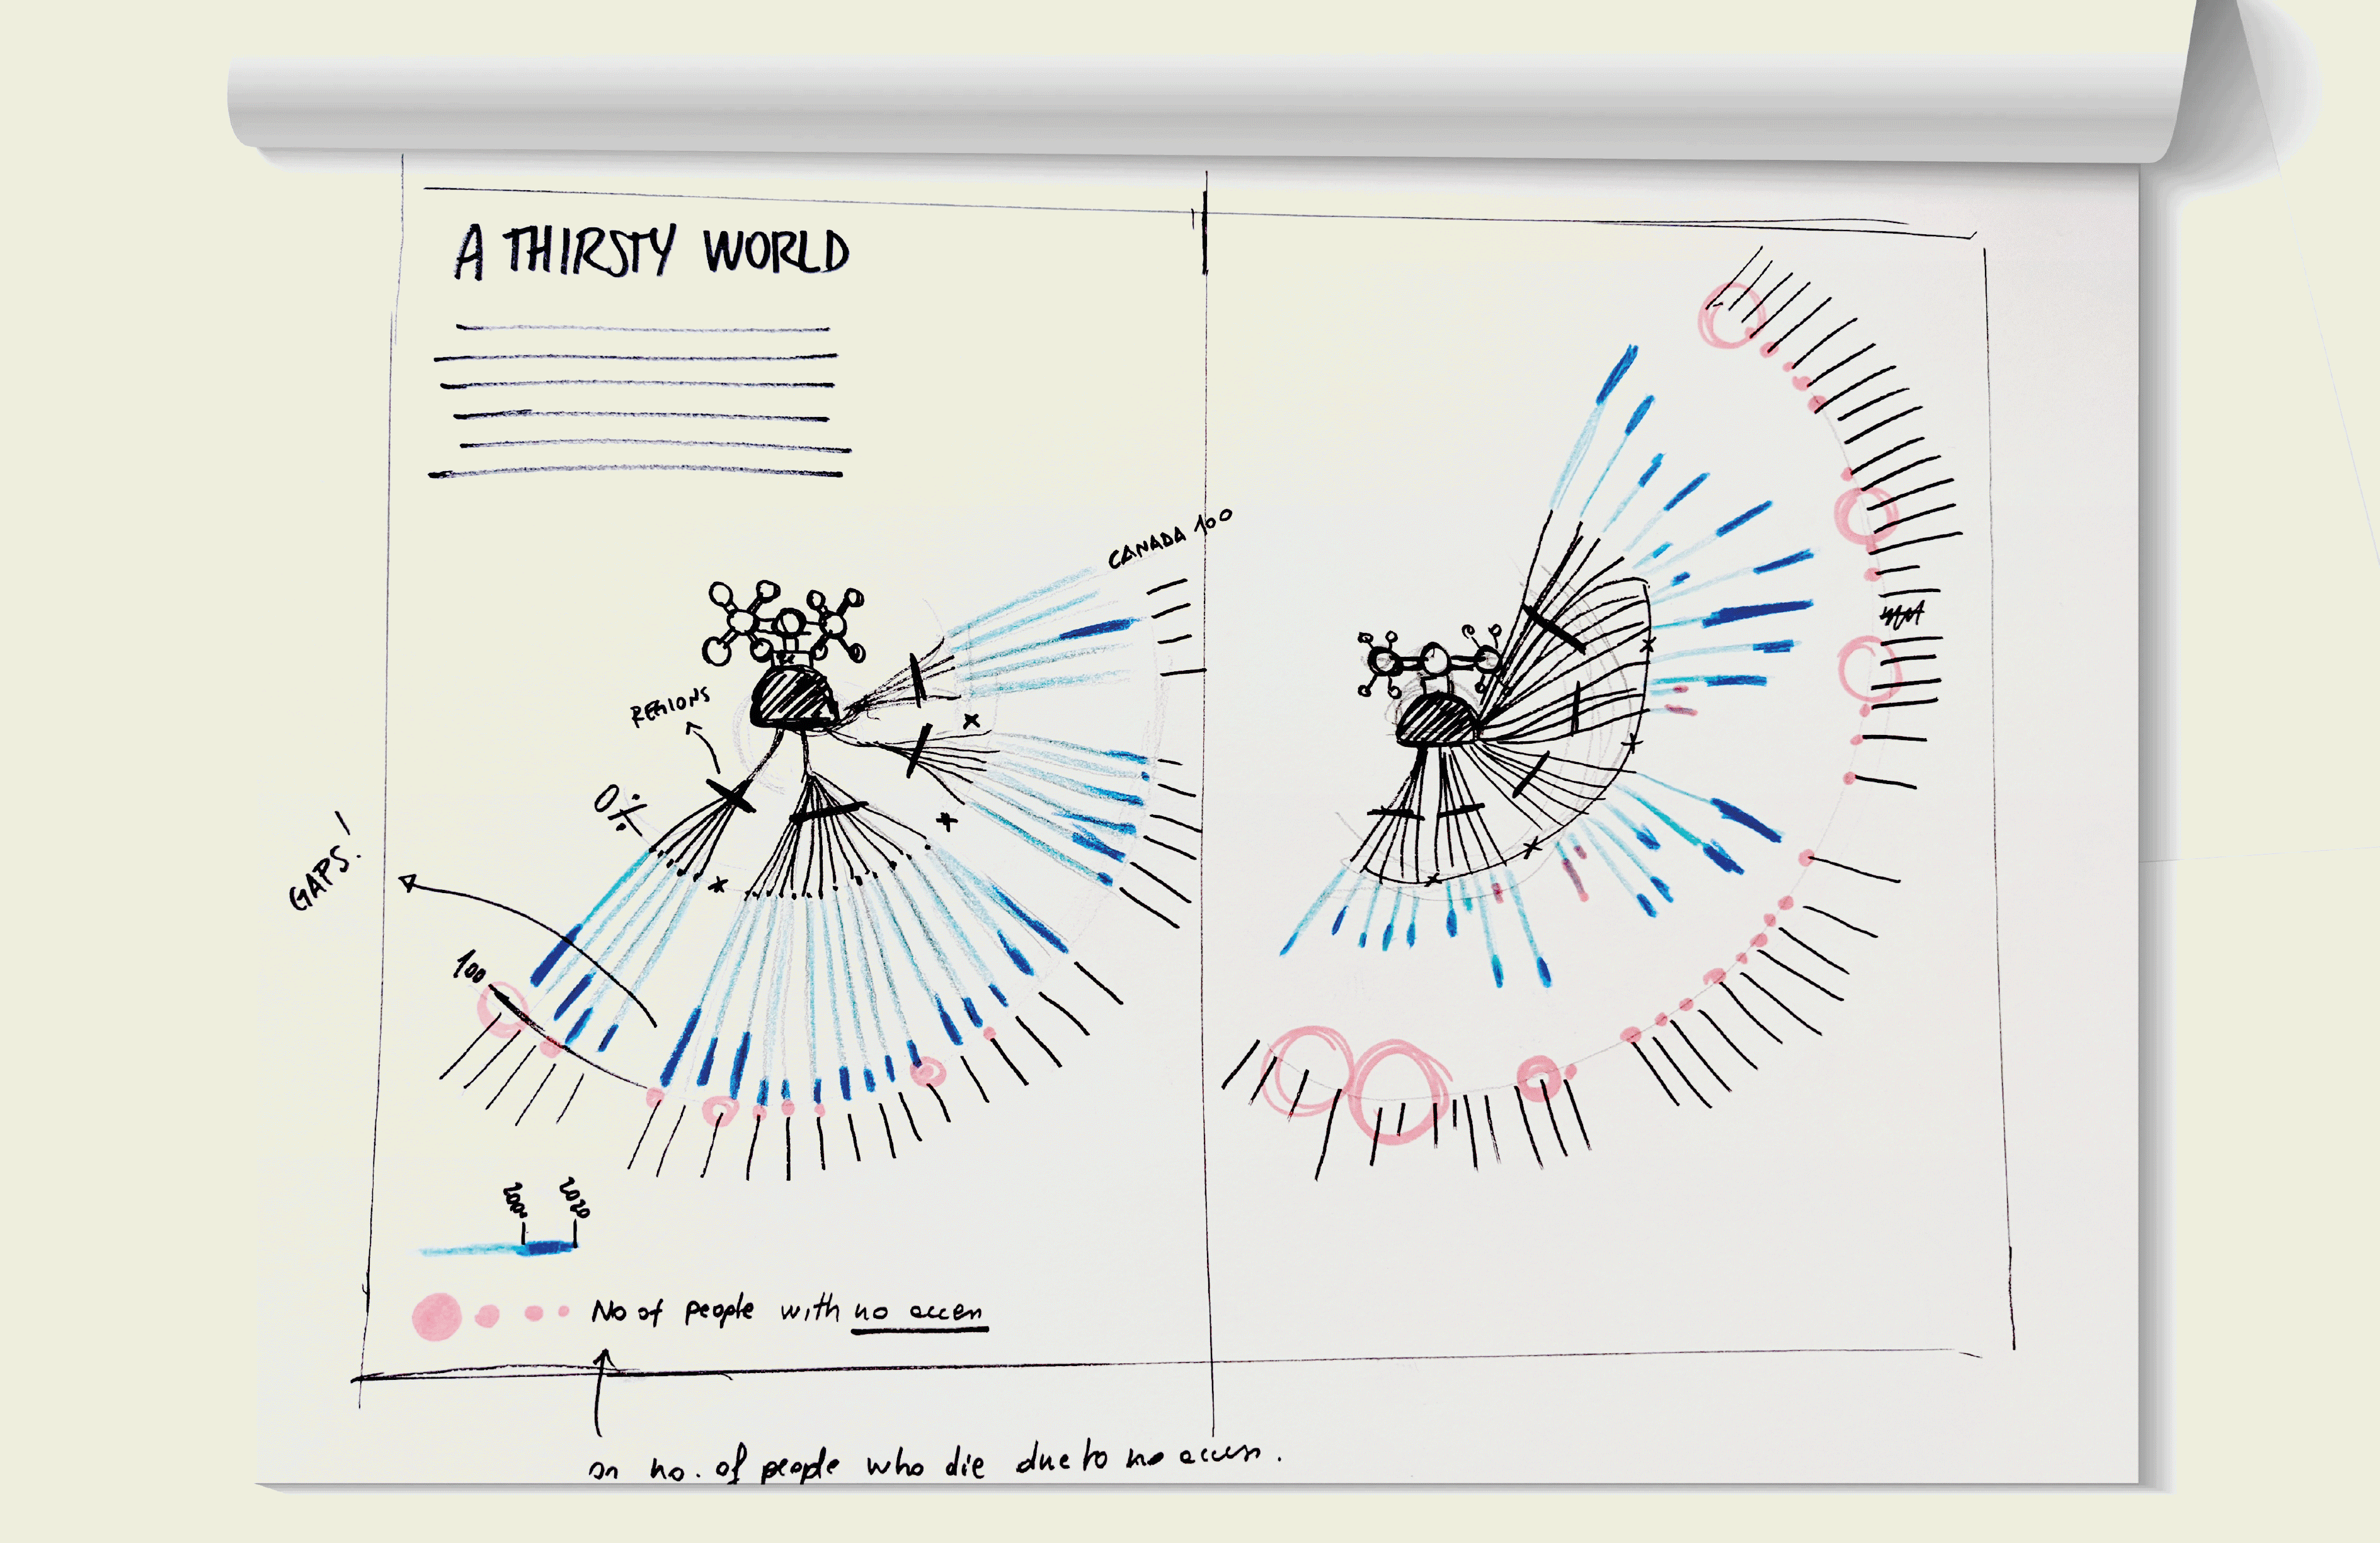 A THIRSTY WORLD
CANADA 100
REGIONS
0%
GAPS!
100
2000 2020
No of people with no access
or no. of people who die due to no access.